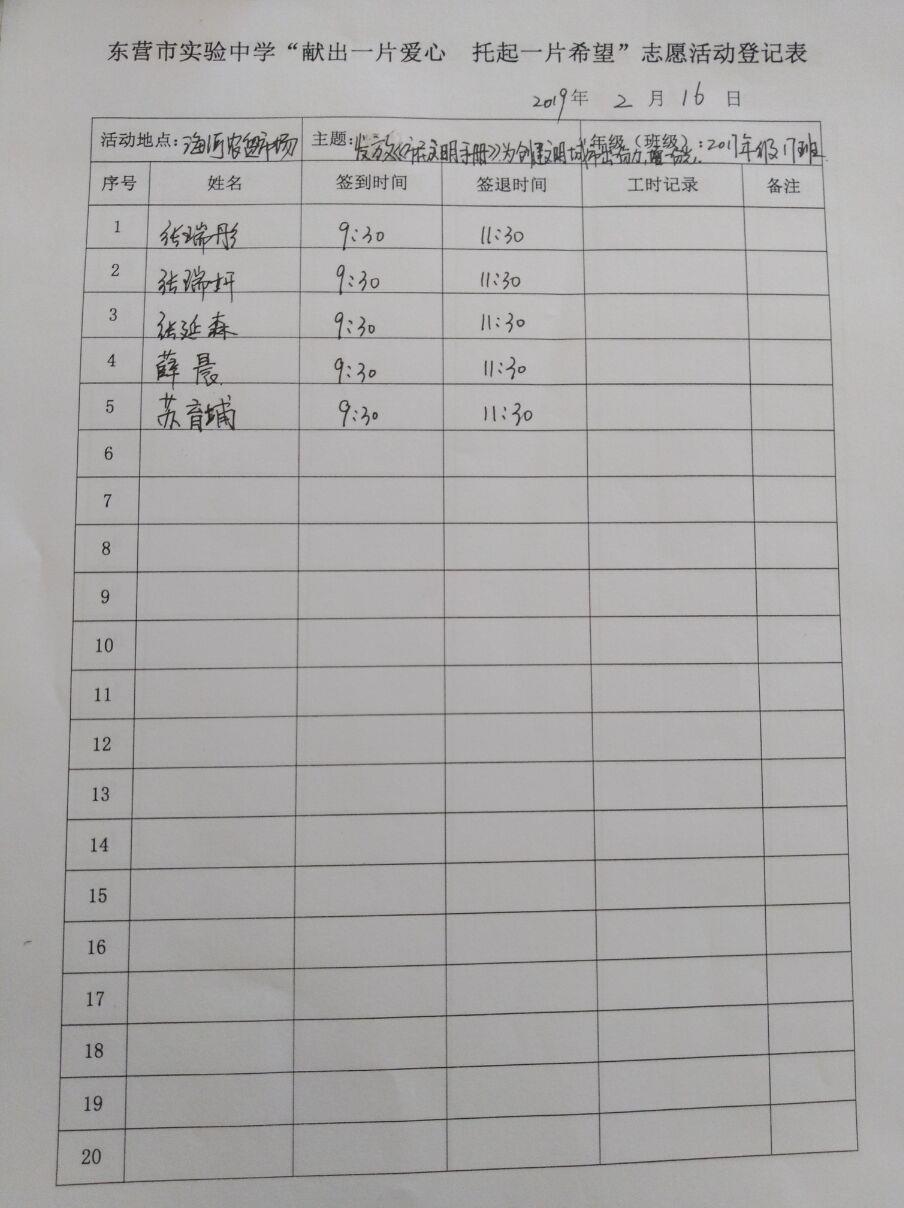 东营市实验中学“献出一片爱心　托起一片希望”志愿活动登记表
2019年 2 月 16 日
活动地点：海河农贸市场 主题：发放《市民文明手册》为创建文明城市出份力, 年级（班级）：2017年级17班
序号 姓名 签到时间 签退时间 工时记录 备注
1 张瑞彤 9:30 11:30
2 张瑞妍 9:30 11:30
3 张延森 9:30 11:30
4 薛晨 9:30 11:30
5 苏育埔 9:30 11:30
6
7
8
9
10
11
12
13
14
15
16
17
18
19
20